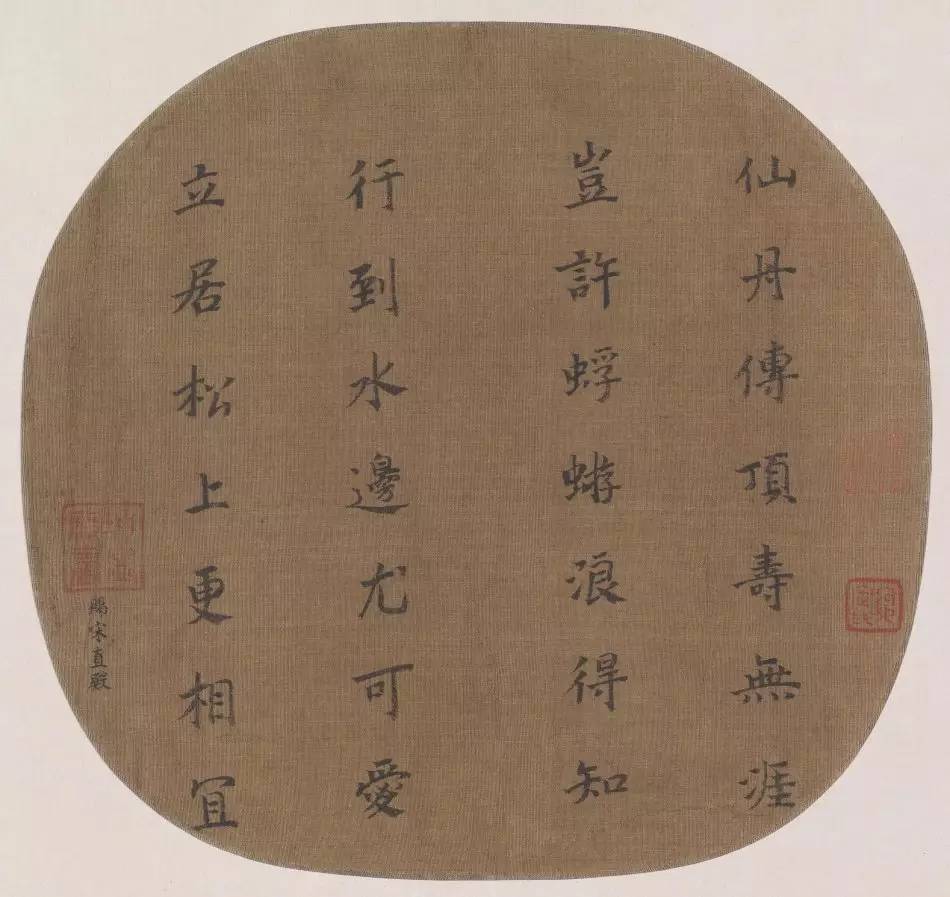 仙丹傳頂壽無涯
豈許蜉蝣浪得知
行到水邊尤可愛
立居松上更相宜
賜宋直殿